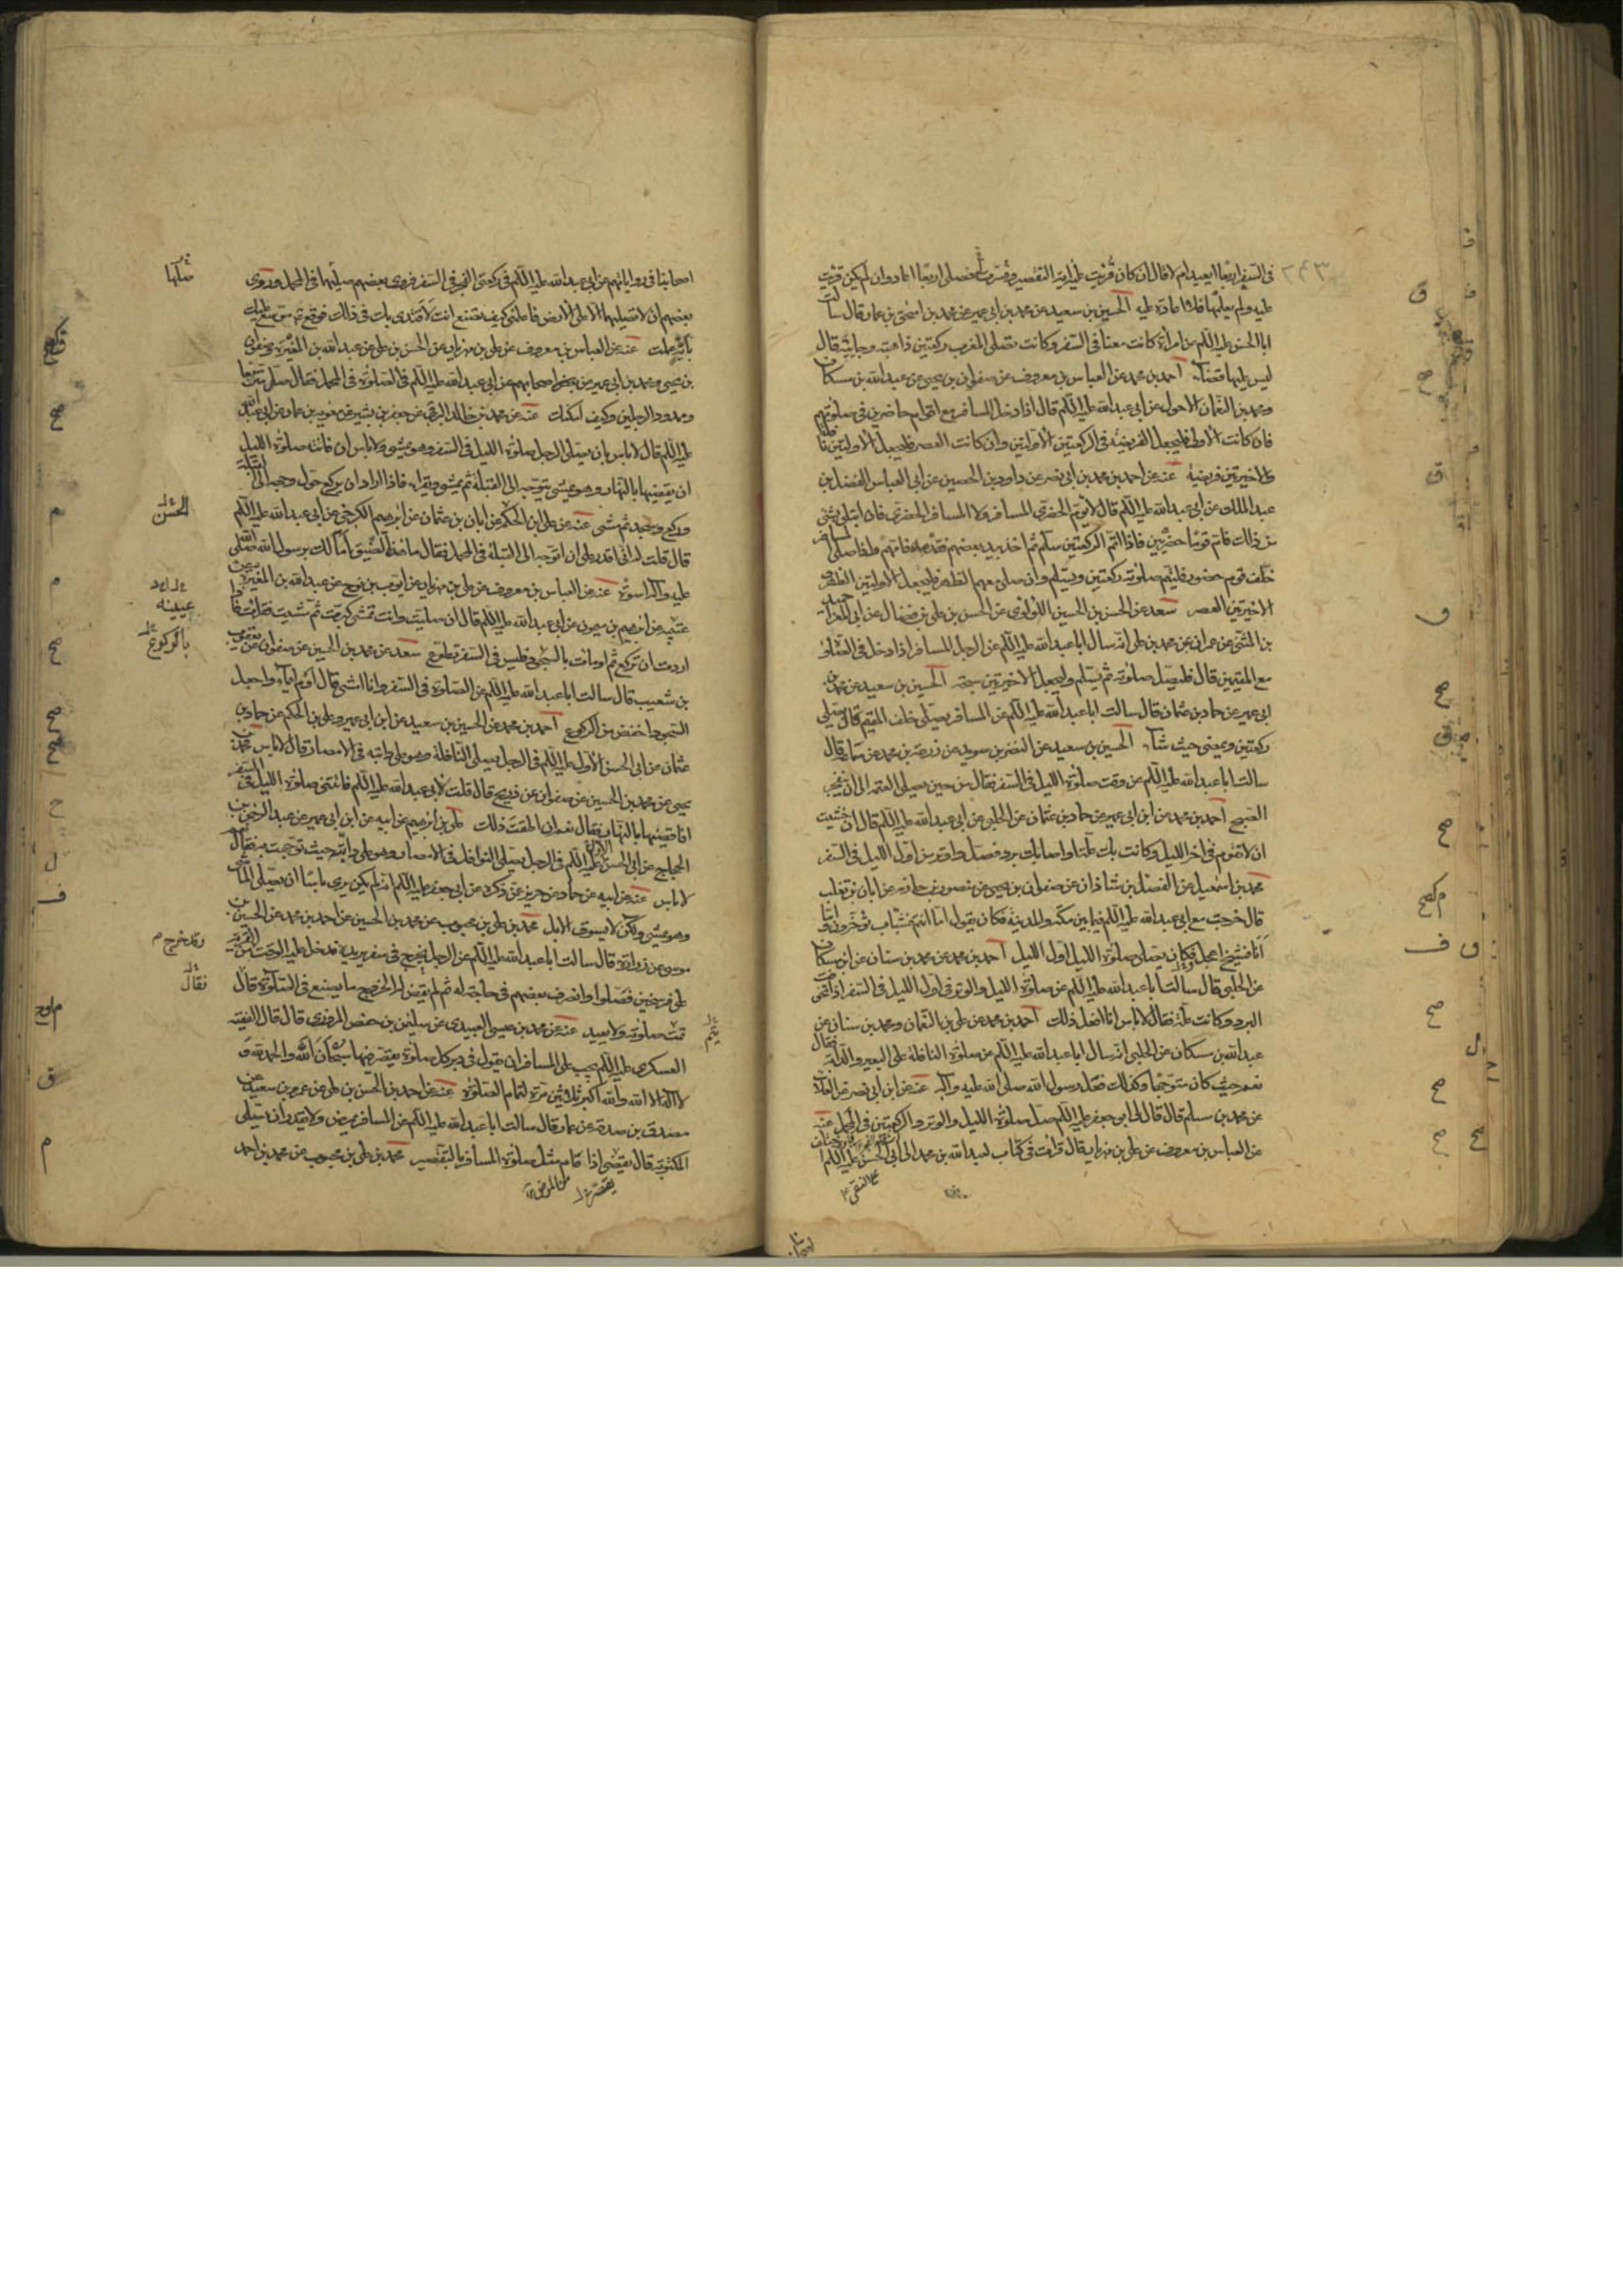 فى السفر اربعا ايعيد ام لا قال ان كان قرئت عليه اية التقصير وفسرت له فصلى اربعا اعاد وان لم يكن قرئت
عليه ولم يعلمها فلا اعادة عليه الحسين بن سعيد عن محمد بن ابى عمير عن محمد بن اسحق بن عمار قال سالت
ابا الحسن عليه السلام عن امراة كانت معنا فى السفر وكانت تصلى المغرب ركعتين ذاهبة وجاية قال
ليس عليها قضاء احمد بن محمد عن العباس بن معروف عن صفوان بن يحيى عن عبدالله بن مسكان
ومحمد بن النعمان الاحول عن ابى عبدالله عليه السلام قال اذا دخل المسافر مع اقوام حاضرين فى صلوتهم
فان كانت الاولى فليجعل الفريضة فى الركعتين الاولتين وان كانت العصر فليجعل الاولتين نافلة
والاخيرتين فريضة عنه عن احمد بن محمد بن ابى نصر عن داود بن الحصين عن ابى العباس الفضل بن
عبد الملك عن ابى عبدالله عليه السلام قال لا يؤم الحضرى المسافر ولا المسافر الحضرى فان ابتلى بشئ
من ذلك فام قوما حضريين فاذا اتم الركعتين سلم ثم اخذ بيد بعضهم فقدمه فامهم واذا صلى المسافر
خلف قوم حضور فليتم صلوته ركعتين ويسلم وان صلى معهم الظهر فليجعل الاولتين الظهر
الاخيرتين العصر سعد عن الحسن بن الحسين اللؤلؤى عن الحسن بن على بن فضال عن ابى المغرا حميد
بن المثنى عن عمران عن محمد بن على انه سال ابا عبدالله عليه السلام عن الرجل المسافر اذا دخل فى الصلوة
مع المقيمين قال فليصل صلوته ثم يسلم وليجعل الاخيرتين سبحة الحسين بن سعيد عن محمد بن
ابى عمير عن حماد بن عثمان قال سالت ابا عبدالله عليه السلام عن المسافر يصلى خلف المقيم قال يصلى
ركعتين ويمضى حيث شاء الحسين بن سعيد عن النضر بن سويد عن زرعة بن محمد عن سماعة قال
سالت ابا عبدالله عليه السلام عن وقت صلوة الليل فى السفر فقال من حين يصلى العتمة الى ان ينفجر
الصبح احمد بن محمد عن ابن ابى عمير عن حماد بن عثمان عن الحلبى عن ابى عبدالله عليه السلام قال ان خشيت
ان لا تقوم فى اخر الليل وكانت بك علة او اصابك برد فصل واوتر من اول الليل فى السفر
محمد بن اسمعيل عن الفضل بن شاذان عن صفوان بن يحيى عن منصور بن حازم عن ابان بن تغلب
قال خرجت مع ابى عبدالله عليه السلام فيما بين مكة والمدينة فكان يقول اما انتم فشباب تؤخرون واما
انا فشيخ اعجل فكان يصلى صلوة الليل اول الليل احمد بن محمد عن محمد بن سنان عن ابن مسكان
عن الحلبى قال سالت ابا عبدالله عليه السلام عن صلوة الليل والوتر فى اول الليل فى السفر اذا تخوفت
البرد وكانت علة فقال لا باس انا افعل ذلك احمد بن محمد عن على بن النعمان ومحمد بن سنان عن
عبدالله بن مسكان عن الحلبى انه سال ابا عبدالله عليه السلام عن صلوة النافلة على البعير والدابة فقال
نعم حيث كان متوجها وكذلك فعل رسول الله صلى الله عليه واله عنه عن ابن ابى نصر عن العلاء
عن محمد بن مسلم قال قال لى ابو جعفر عليه السلام صل صلوة الليل والوتر والركعتين فى المحمل عنه
عن العباس بن معروف عن على بن مهزيار قال قرات فى كتاب لعبدالله بن محمد الى ابى الحسن عليه السلام
على النقى
اصحابنا فى رواياتهم عن ابى عبدالله عليه السلام فى ركعتى الفجر فى السفر فروى بعضهم صلهما فى المحمل وروى
بعضهم ان لا تصليهما الا على الارض فاعلمنى كيف تصنع انت لاقتدى بك فى ذلك فوقع موسع عليك
باية عملت عنه عن العباس بن معروف عن على بن مهزيار عن الحسن بن على عن عبدالله بن المغيرة وصفوان
بن يحيى ومحمد بن ابى عمير عن بعض اصحابهم عن ابى عبدالله عليه السلام فى الصلوة فى المحمل فقال صل متربعا
وممدود الرجلين وكيف امكنك عنه عن محمد بن خالد البرقى عن جعفر بن بشير عن معوية بن عمار عن ابى عبدالله
عليه السلام قال لا باس بان يصلى الرجل صلوة الليل فى السفر وهو يمشى ولا باس ان فاتته صلوة الليل
ان يقضيها بالنهار وهو يمشى يتوجه الى القبلة ثم يمشى ويقرا فاذا اراد ان يركع حول وجهه الى القبلة
وركع وسجد ثم مشى عنه عن على بن الحكم عن ابان بن عثمان عن ابرهيم الكرخى عن ابى عبدالله عليه السلام
قال قلت له انى اقدر على ان اتوجه الى القبلة فى المحمل فقال ما هذا الضيق اما لك برسول الله صلى الله
عليه واله اسوة عنه عن العباس بن معروف عن على بن مهزيار عن ايوب بن نوح عن عبدالله بن المغيرة عن
عتيبة عن ابرهيم بن ميمون عن ابى عبدالله عليه السلام قال ان صليت وانت تمشى كبرت ثم مشيت فقرات فاذا
اردت ان تركع ثم اومات بالسجود فليس فى السفر تطوع سعد عن محمد بن الحسين عن صفوان عن يعقوب
بن شعيب قال سالت ابا عبدالله عليه السلام عن الصلوة فى السفر وانا امشى قال اوم ايماء واجعل
السجود اخفض من الركوع احمد بن محمد عن الحسين بن سعيد عن ابن ابى عمير وعلى بن الحكم عن حماد بن
عثمان عن ابى الحسن الاول عليه السلام فى الرجل يصلى النافلة وهو على دابته فى الامصار قال لا باس محمد بن
يحيى عن محمد بن الحسين عن صفوان عن ذريح قال قلت لابى عبدالله عليه السلام فاتتنى صلوة الليل فى السفر
افاقضيها بالنهار فقال نعم ان اطقت ذلك على بن ابرهيم عن ابيه عن ابن ابى عمير عن عبد الرحمن بن
الحجاج عن ابى الحسن الاول عليه السلام فى الرجل يصلى النوافل فى الامصار وهو على دابته حيث توجهت به فقال
لا باس عنه عن ابيه عن حماد عن حريز عمن ذكره عن ابى جعفر عليه السلام انه لم يكن يرى باسا ان يصلى الماشى
وهو يمشى ولكن لا يسوق الابل محمد بن على بن محبوب عن محمد بن الحسين عن احمد بن محمد عن الحسين بن
موسى عن زرارة قال سالت ابا عبدالله عليه السلام عن الرجل يخرج فى سفر يريده فدخل عليه الوقت من القرية
على فرسخين فصلوا وانصرف بعضهم فى حاجة له ثم لم يقض له الخروج ما يصنع فى الصلوة قال
تمت صلوته ولا يعيد عنه عن محمد بن عيسى العبيدى عن سليمن بن حفص المروزى قال قال الفقيه
العسكرى عليه السلام يجب على المسافر ان يقول فى دبر كل صلوة يقصر فيها سبحان الله والحمد لله و
لا اله الا الله والله اكبر ثلثين مرة لتمام الصلوة عنه عن احمد بن الحسن بن على عن عمرو بن سعيد عن
مصدق بن صدقة عن عمار قال سالت ابا عبدالله عليه السلام عن المسافر يمرض ولا يقدر ان يصلى
المكتوبة قال يقضى اذا قام مثل صلوة المسافر بالتقصير محمد بن على بن محبوب عن محمد بن احمد
من المرض
صلهما
الحسن
عيينه
بالركوع
وقد خرج
فقال
يتم